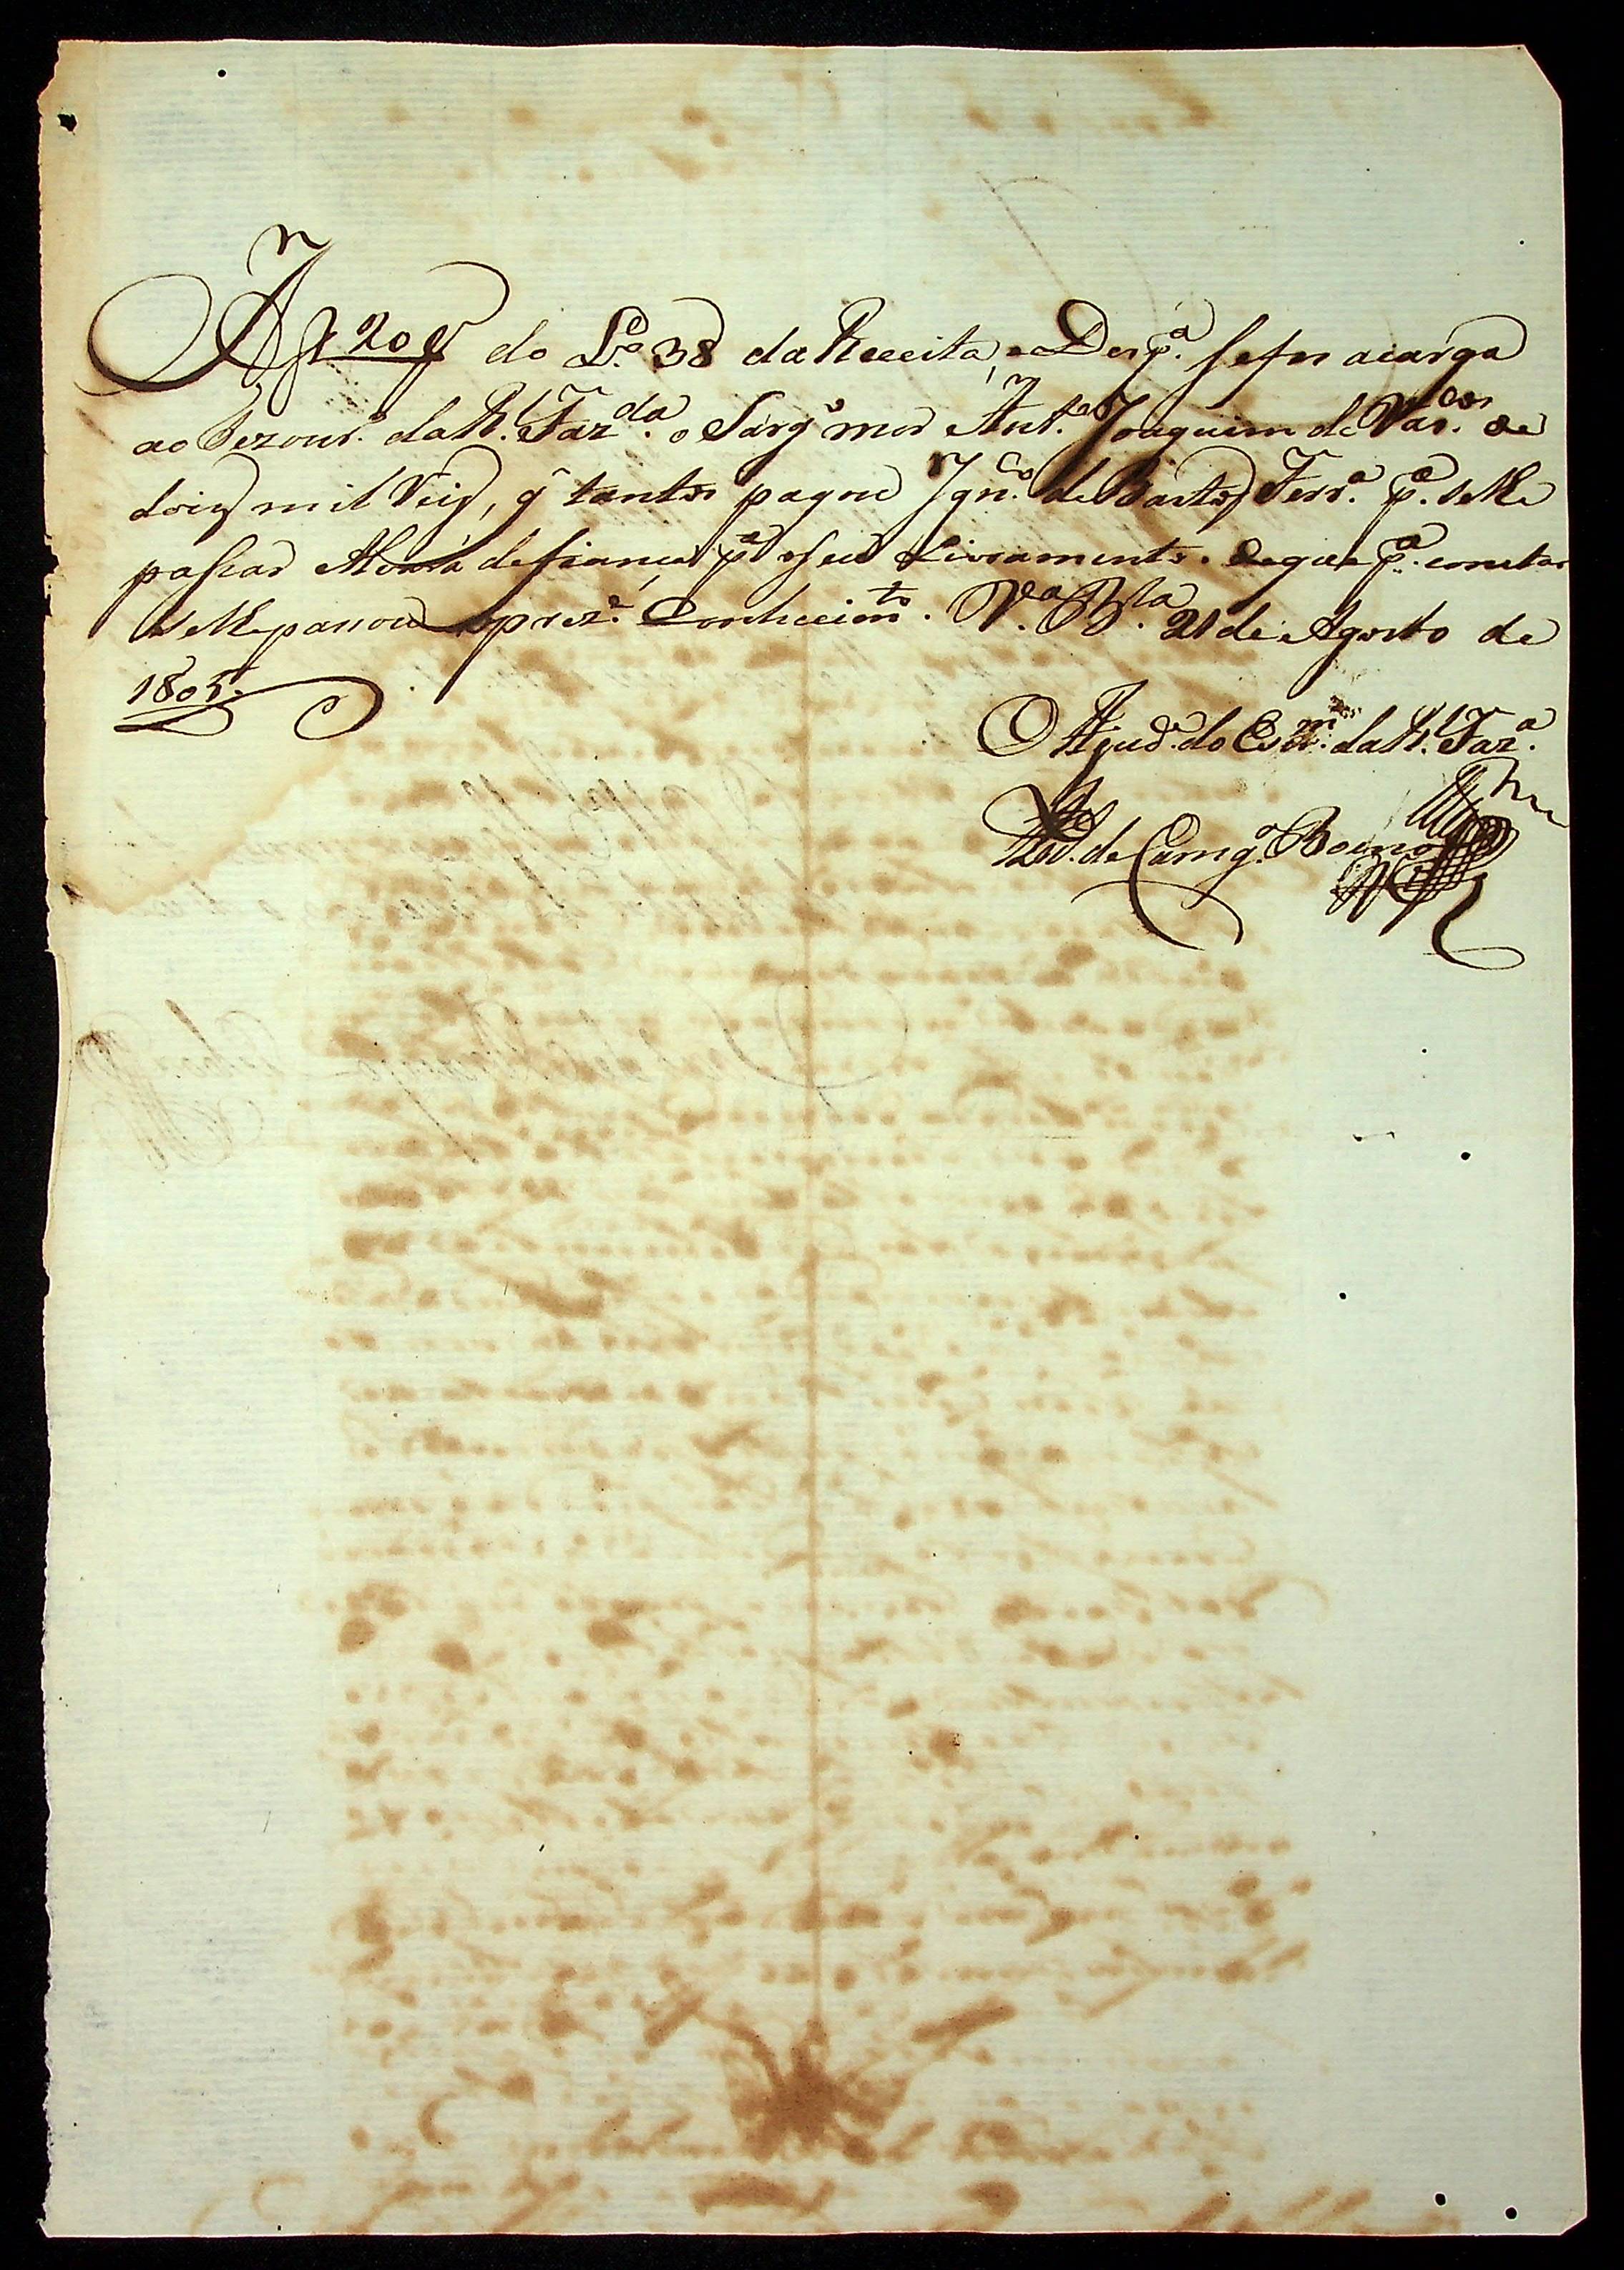 Af 20 v do L.º 38 da Receita, e Desp.ª se fes acarga
ao Tezour.º da R.l Faz.da o Sarg.to mor Ant.º Joaquim de Vas.cos de
dois mil reis, q̃ tantos pagou Ign.co de Bastos Ferr.ª p.ª se lhe
passar Alvará de fiança p.ª o seu Livramento. Deque p.ª constar
se lhe passou o prez.e Conhecim.to. V.ª B.la 21 de Agosto de
1805.
O Ajud.e do Escr.m da R.l Faz.ª
de Camg.º Bueno